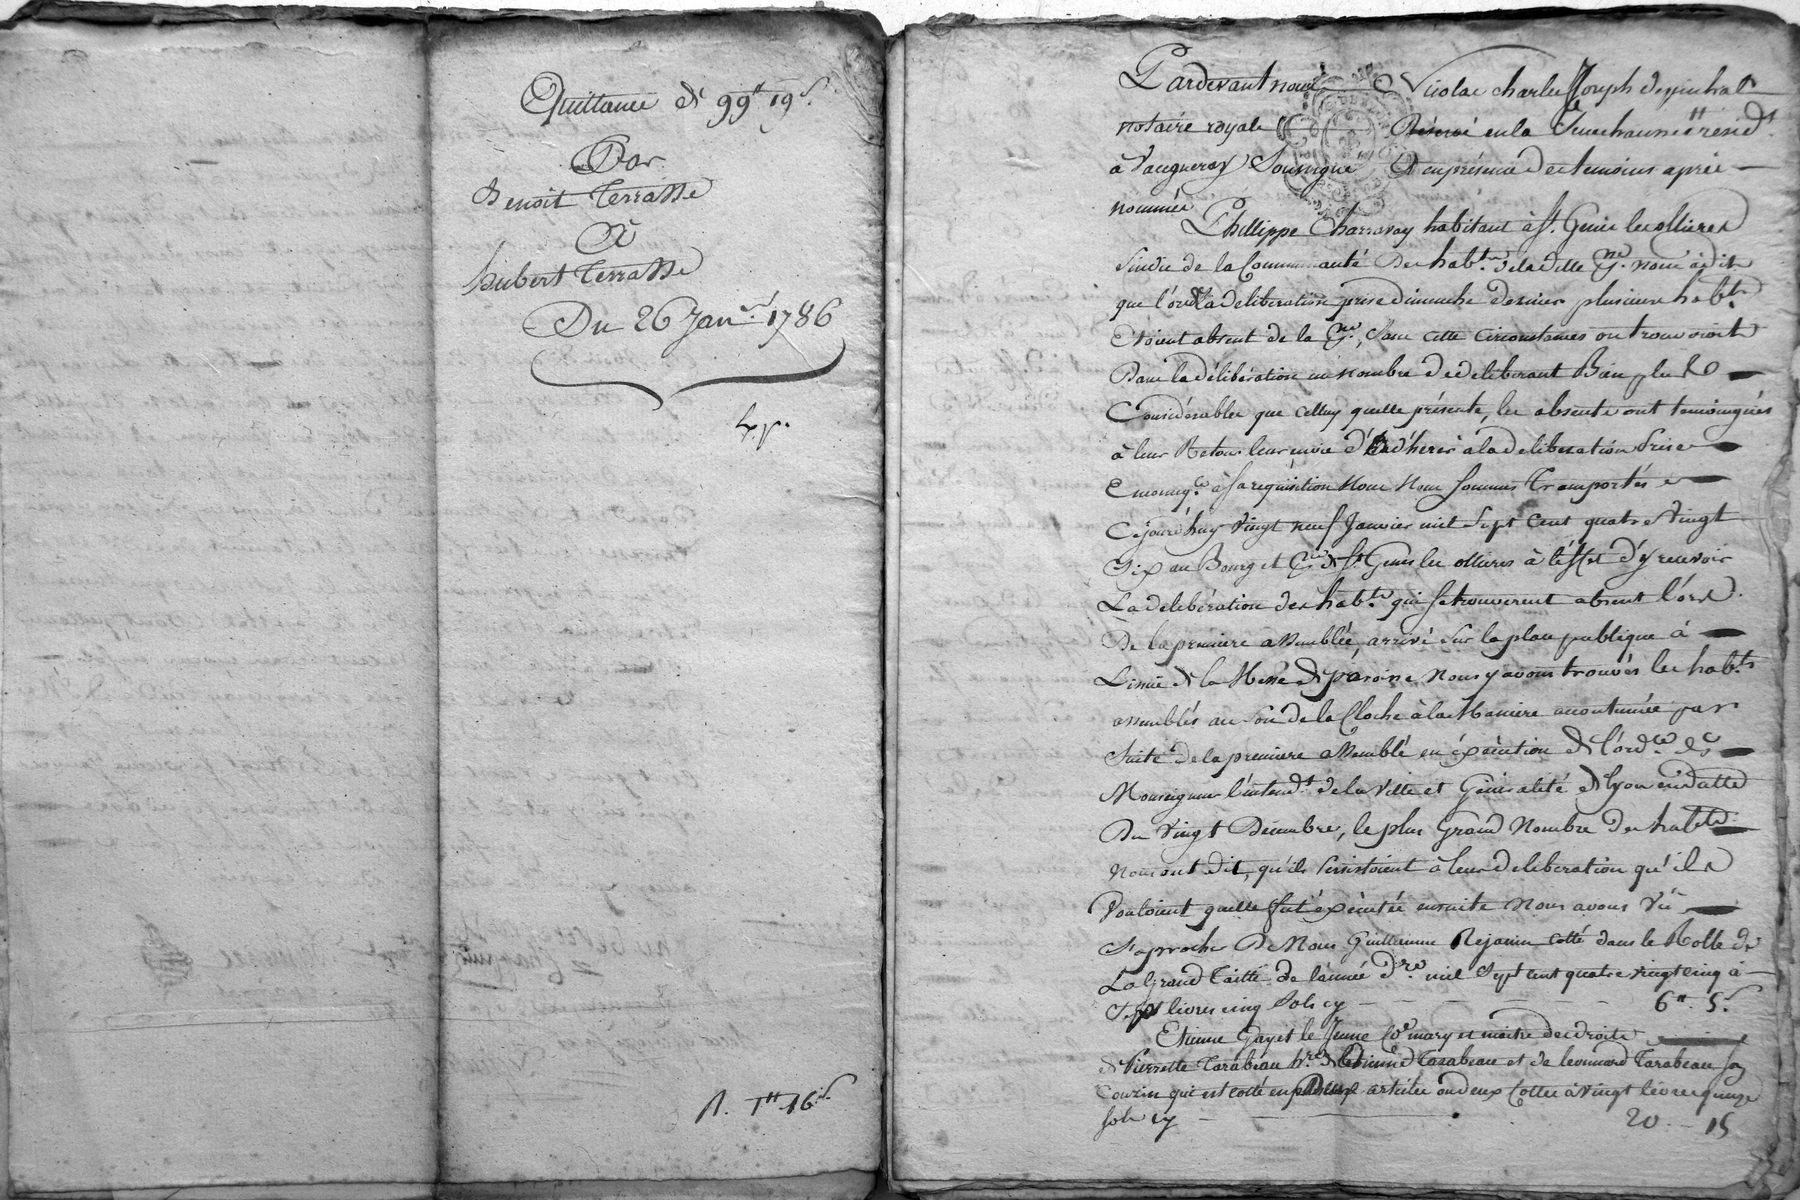 Quittance de 99ᵗᵗ 19ˢ.
Par
Benoit Terrasse
A
hubert Terrasse
Du 26 Janᵛʳ. 1786
Exp.
R. 1ᵗᵗ 16ˢ
Pardevant nous Nicolas charles Joseph depin
notaire royal Réservé en la Senechaussée resid.ᵗ
à Vaugneray Soussigné Et en présence des temoins après
nommés
Philippe Charravay habitant à Sᵗ. Genis les ollieres
sindic de la Communauté Des habᵗˢ. de la ditte Pⁿᵉ. nous a dit
que lors de la deliberation prise dimanche dernier plusieurs habᵗˢ.
Etoient absent de la Pⁿᵉ., sans cette circonstances on trouveroit
Dans la délibération un nombre de deliberant Bien plus
Considérables que celluy quelle présente, les absents ont temoingnés
à leur Retour leur envie d'Adhérer à la deliberation Prise
En conseq.ᶜᵉ à sa requisition Nous Nous sommes Transportés
Cejourd'huy Vingt neuf Janvier mil Sept Cent quatre Vingt
Six au Bourg et Pⁿᵉ de Sᵗ Genis les ollieres à l'effet d'y recevoir
La delibération des habᵗˢ. qui se trouverent absent lors
De la premiere assemblée, arrivé sur la place publique à
L'issuë de la Messe de paroisse Nous y avons trouvés les habᵗˢ
assemblés au Son de la Cloche à la Maniere accoutumée par
Suite de la premiere assemblé en éxécution de l'ordᶜᵉ de
Monseigneur l'intendᵗ de la Ville et Généralité de lyon en datte
Du Vingt Décembre, le plus Grand Nombre Des habᵗˢ.
Nous ont dit, qu'ils Persistoient à leur deliberation qu'ils
Vouloient quelle fut éxécutée ensuite Nous avons Vû
S'aprocher De Nous Guillaume Rejanin cotté dans le Rolle de
La Grand Taille de l'année dʳᵉ. mil Sept cent quatre vingt cinq à
Sept livres cinq Sols cy 6ᵗᵗ. 5ˢ.
Etienne Gayet le Jeune Co mary et maitre des droits
de Pierrette Tarabeau hʳᵉ. de Etienne Tarabeau et de leonnard Tarabeau son
Couzin qui est cotté en plusieurs articles ou deux Cottes à Vingt livres quinze
sols cy 20. 15